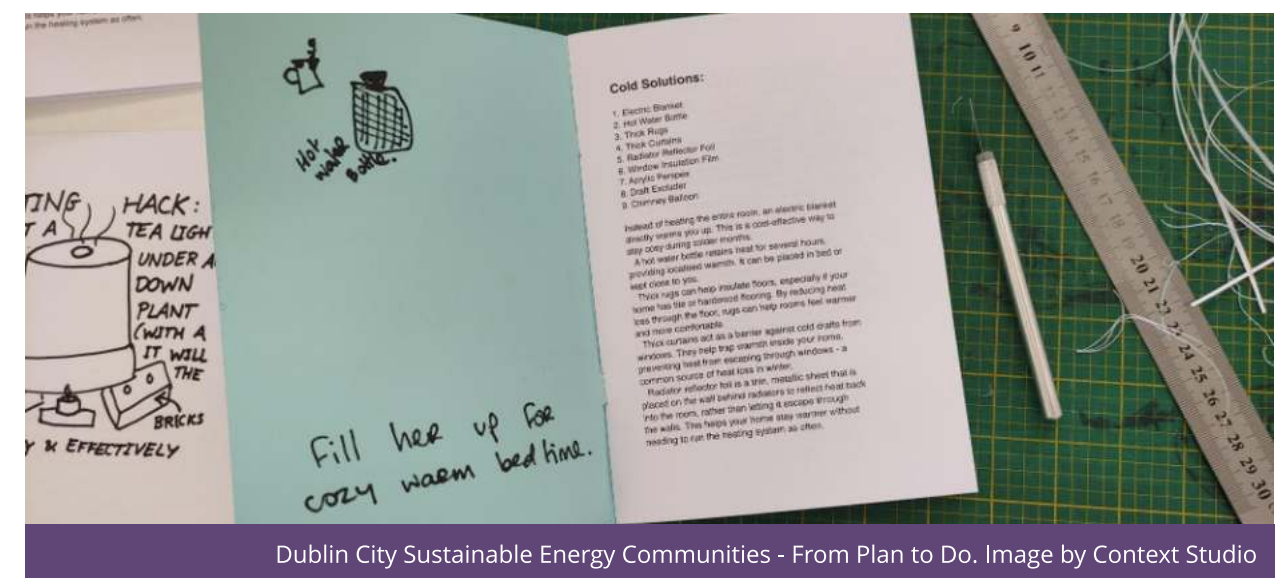 n the heating system as often.
TING HACK:
T A TEA LIGH
UNDER A
DOWN
PLANT
(WITH A
IT WILL
THE
BRICKS
Y & EFFECTIVELY
Hot
Water
Bottle.
Fill her up for
cozy warm bedtime.
Cold Solutions:
1. Electric Blanket
2. Hot Water Bottle
3. Thick Rugs
4. Thick Curtains
5. Radiator Reflector Foil
6. Window Insulation Film
7. Acrylic Perspex
8. Draft Excluder
9. Chimney Balloon
Instead of heating the entire room, an electric blanket
directly warms you up. This is a cost-effective way to
stay cosy during colder months.
A hot water bottle retains heat for several hours,
providing localised warmth. It can be placed in bed or
kept close to you.
Thick rugs can help insulate floors, especially if your
home has tile or hardwood flooring. By reducing heat
loss through the floor, rugs can help rooms feel warmer
and more comfortable.
Thick curtains act as a barrier against cold drafts from
windows. They help trap warmth inside your home,
preventing heat from escaping through windows - a
common source of heat loss in winter.
Radiator reflector foil is a thin, metallic sheet that is
placed on the wall behind radiators to reflect heat back
into the room, rather than letting it escape through
the walls. This helps your home stay warmer without
needing to run the heating system as often.
9 10 11 13 14 15 16 17 18 19 20 21 22 23 24 25 26 27 28 29 30
Dublin City Sustainable Energy Communities - From Plan to Do. Image by Context Studio